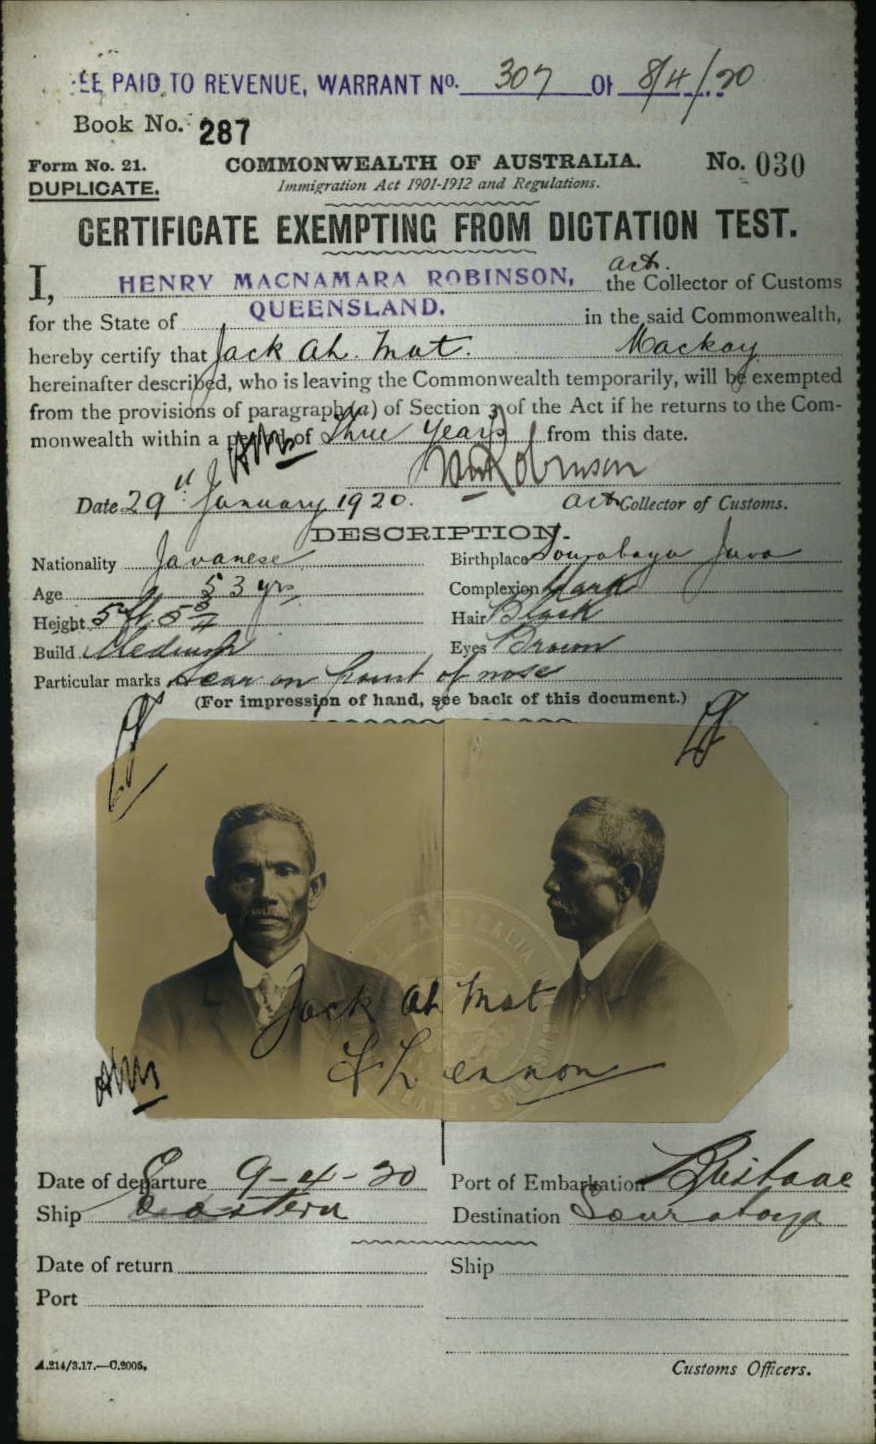 PAID TO REVENUE, WARRANT No. 307 Of 8/4/20
Book No. 287
Form No. 21. COMMONWEALTH OF AUSTRALIA. No. 030
DUPLICATE. Immigration Act 1901-1912 and Regulations.
CERTIFICATE EXEMPTING FROM DICTATION TEST.
I, HENRY MACNAMARA ROBINSON, act. the Collector of Customs
for the State of QUEENSLAND. in the said Commonwealth,
hereby certify that Jack Ah. Mat. Mackay
hereinafter described, who is leaving the Commonwealth temporarily, will be exempted
from the provisions of paragraph (a) of Section 3 of the Act if he returns to the Com-
monwealth within a period of Three Years from this date.
Robinson
Date 29th January 1920. Act Collector of Customs.
DESCRIPTION.
Nationality Javanese Birthplace Sourabaya Java
Age 53 yrs Complexion Dark
Height 5 ft. 5 3/4 Hair Black
Build Medium Eyes Brown
Particular marks Scar on point of nose
(For impression of hand, see back of this document.)
Jack Ah Mat
Lennon
Date of departure 9-4-20 Port of Embarkation Brisbane
Ship Eastern Destination Sourabaya
Date of return Ship
Port
A.214/3.17.—C.2005. Customs Officers.